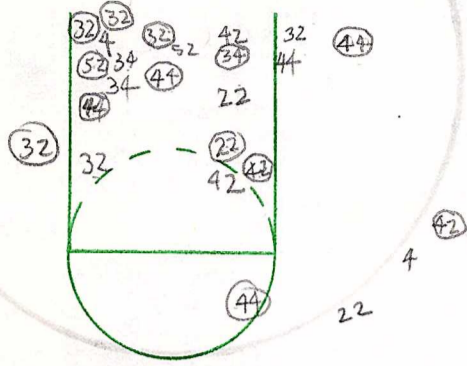 32 32 32 42 32 44
4 52 34 44
52 34 44
34 22
44
32 22
32 42 42
42
4
44 22